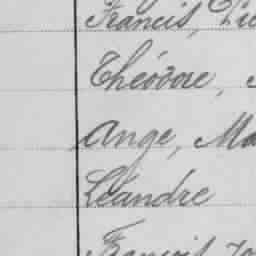 Francis,
Théodore,
Ange, Ma
Léandre
François